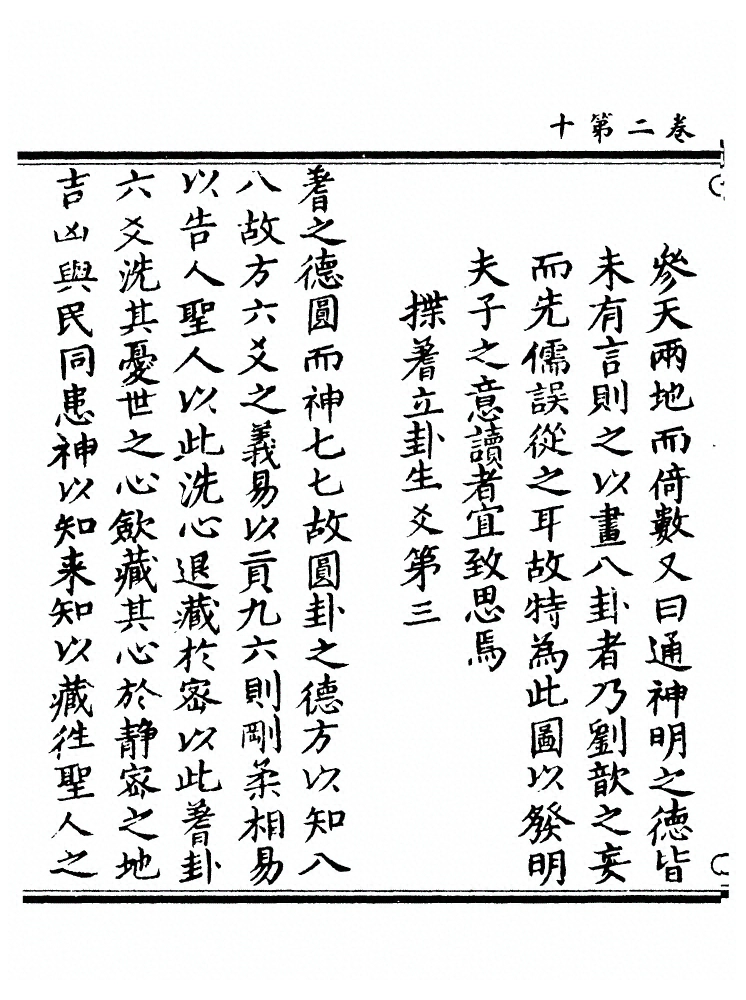 卷二第十
參天兩地而倚數又曰通神明之德皆
未有言則之以畫八卦者乃劉歆之妄
而先儒誤從之耳故特為此圖以發明
夫子之意讀者宜致思焉
揲蓍立卦生爻第三
蓍之德圓而神七七故圓卦之德方以知八
八故方六爻之義易以貢九六則剛柔相易
以告人聖人以此洗心退藏於密以此蓍卦
六爻洗其憂世之心歛藏其心於静密之地
吉凶與民同患神以知来知以藏徃聖人之